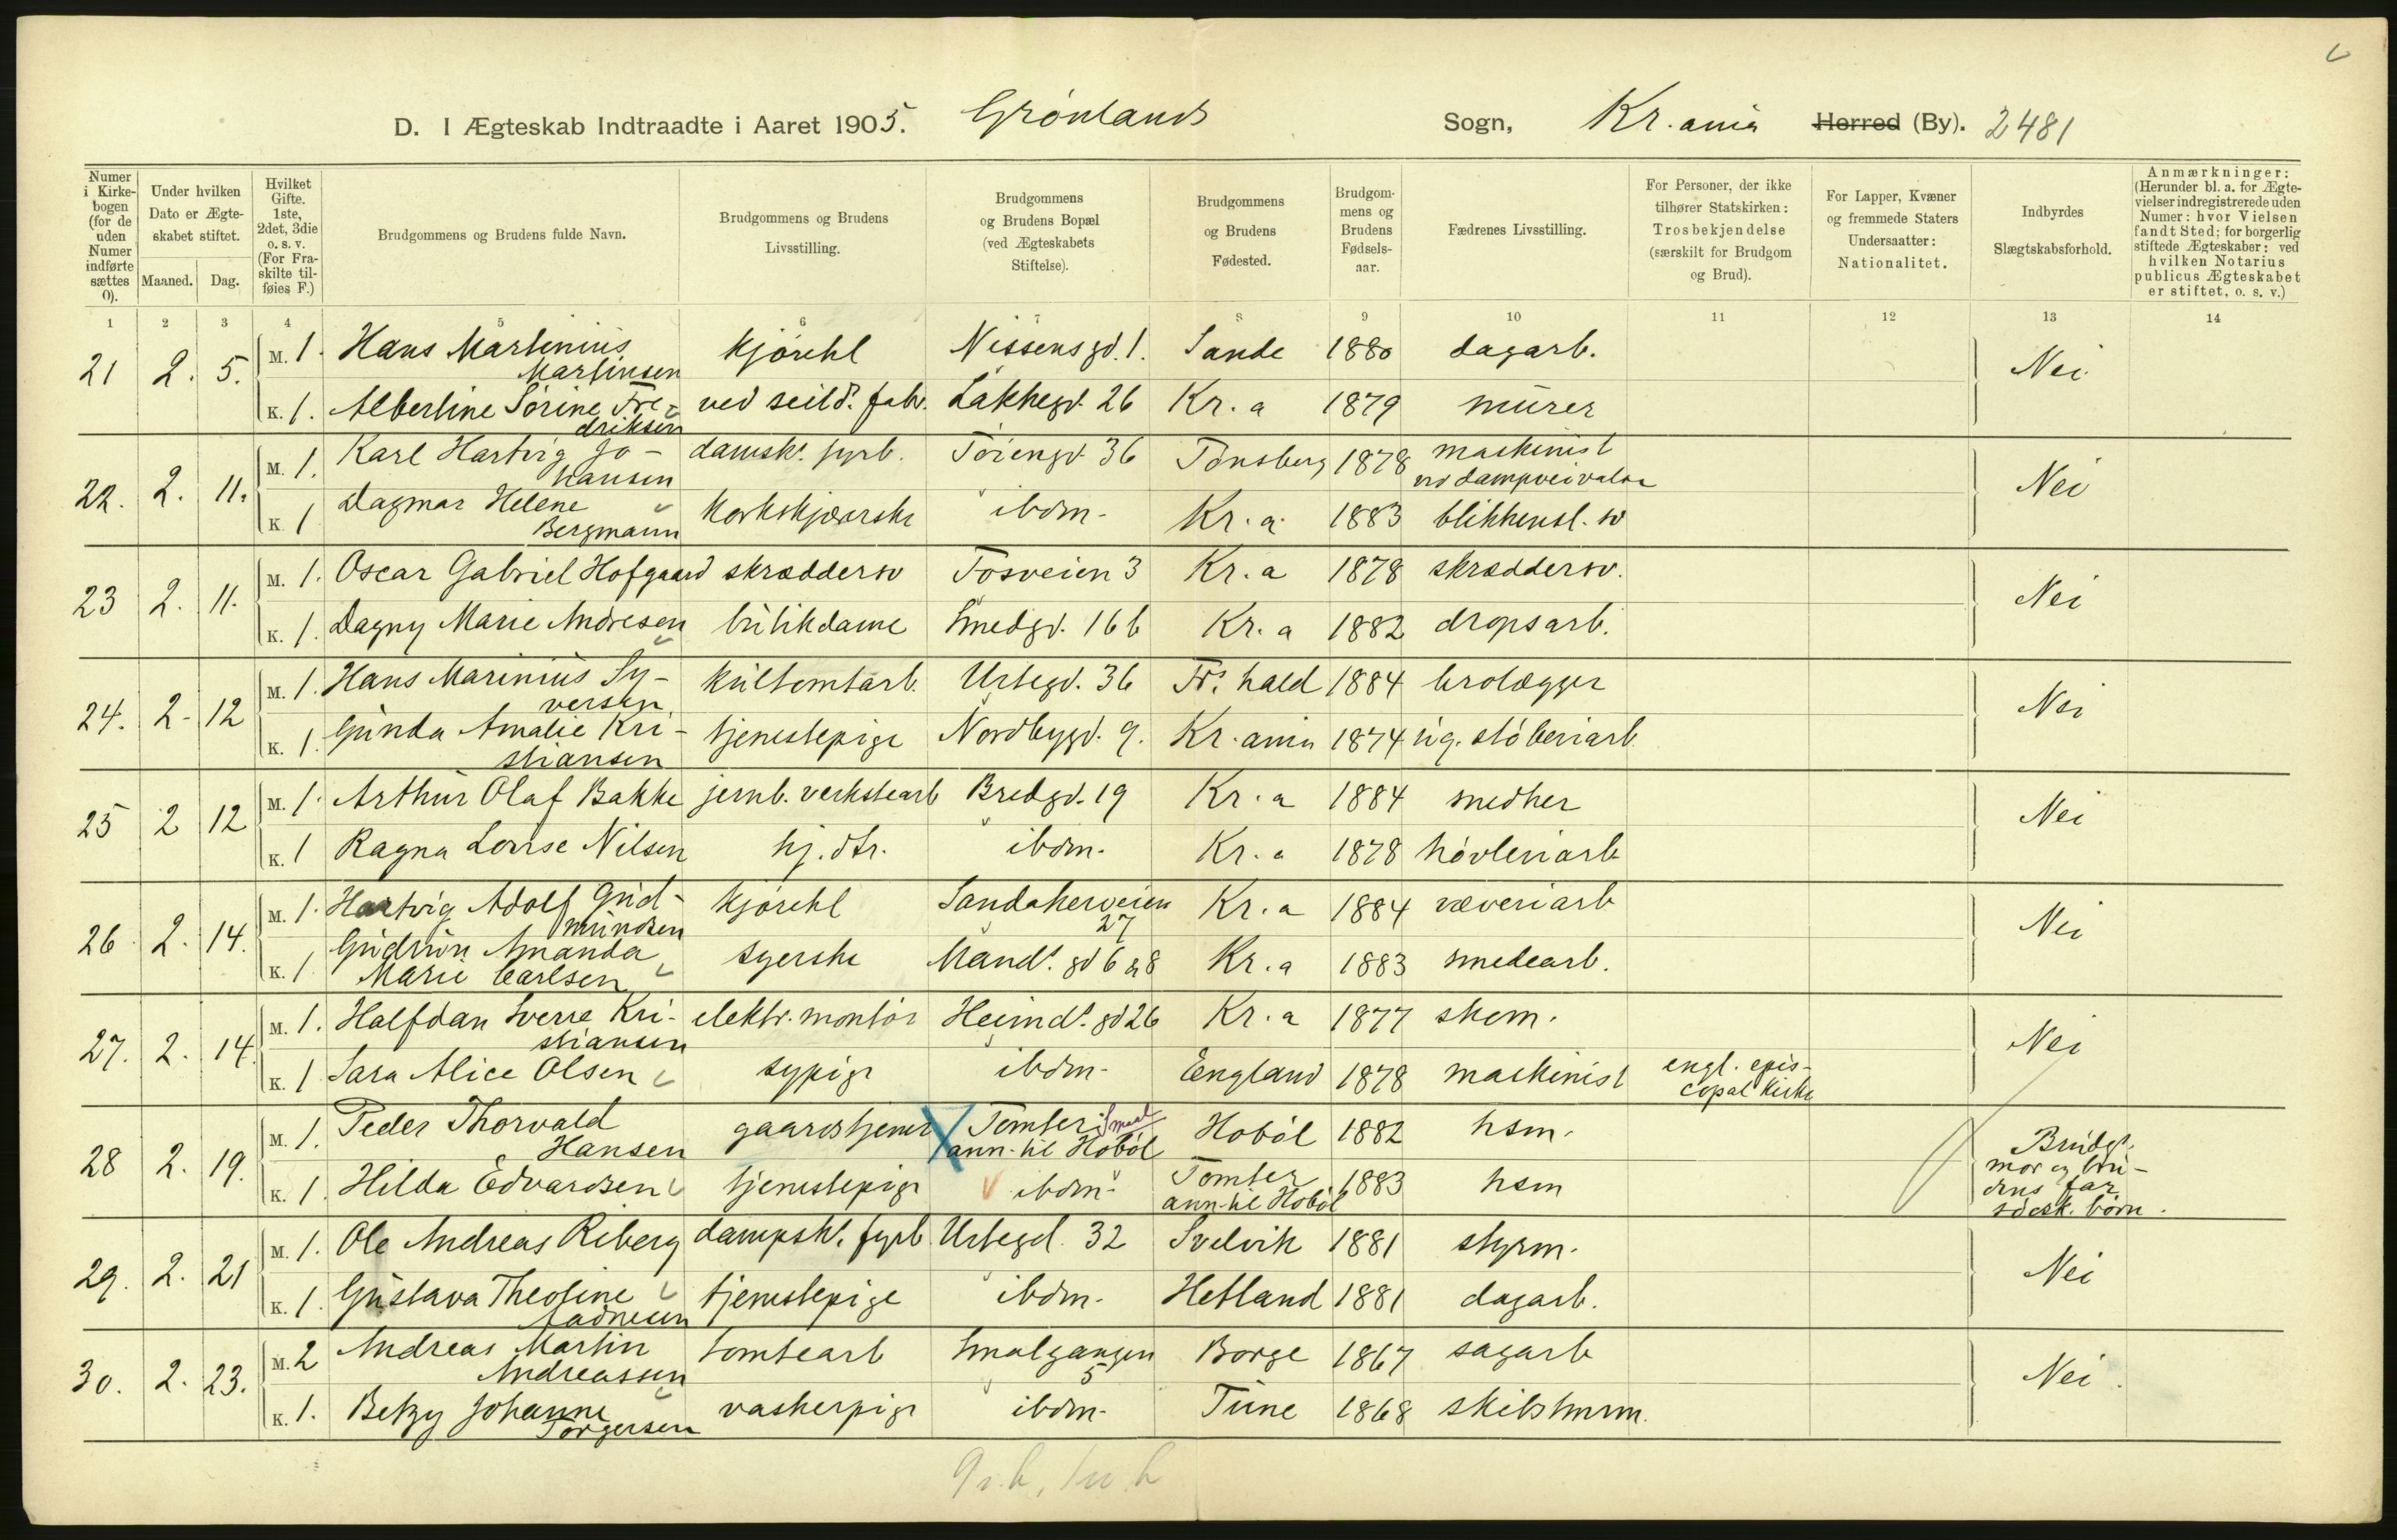 D. I Ægteskab Indtraadte i Aaret 1905. Grönlands Sogn, Kr.ania Herred (By). 2481
Numer i Kirkebogen (for de uden Numer indførte sættes 0).
Under hvilken Dato er Ægteskabet stiftet.
Maaned. Dag.
Hvilket Gifte. 1ste, 2det, 3die o. s. v. (For Fraskilte tilføies F.)
Brudgommens og Brudens fulde Navn.
Brudgommens og Brudens Livsstilling.
Brudgommens og Brudens Bopæl (ved Ægteskabets Stiftelse).
Brudgommens og Brudens Fødested.
Brudgommens og Brudens Fødselsaar.
Fædrenes Livsstilling.
For Personer, der ikke tilhører Statskirken: Trosbekjendelse (særskilt for Brudgom og Brud).
For Lapper, Kvæner og fremmede Staters Undersaatter: Nationalitet.
Indbyrdes Slægtskabsforhold.
Anmærkninger: (Herunder bl. a. for Ægtevielser indregistrerede uden Numer: hvor Vielsen fandt Sted; for borgerlig stiftede Ægteskaber: ved hvilken Notarius publicus Ægteskabet er stiftet, o. s. v.)
1 2 3 4 5 6 7 8 9 10 11 12 13 14
21 2. 5. M. 1. Hans Martinius Martinsen kjörekl Nissensgd. 1. Sande 1880 dagarb. Nei
K. 1. Albertine Sörine Fredriksen ved seild. fabr. Lakkegd. 26 Kr.a 1879 murer
22. 2. 11. M. 1. Karl Hartvig Johansen dampsk. fyrb. Töiengd. 36 Tönsberg 1878 maskinist ved dampveivalse Nei
K. 1 Dagmar Helene Bergmann korkskjærerske ibdm. Kr.a. 1883 blikkensl. sv
23 2. 11. M. 1. Oscar Gabriel Hofgaard skræddersv Tosveien 3 Kr.a 1878 skræddersv. Nei
K. 1. Dagny Marie Andresen butikdame Smedgd. 16 b Kr.a 1882 dropsarb.
24. 2- 12 M. 1. Hans Marinius Syversen kultomtarb. Urtegd. 36 Fr.hald 1884 brolægger Nei
K. 1. Gunda Amalie Kristiansen tjenestepige Nordbygd. 9. Kr.ania 1874 sig. stöberiarb
25 2 12 M. 1. Arthur Olaf Bakke jernb. verkstearb Bredgd. 19 Kr.a 1884 snedker Nei
K. 1 Ragna Lovise Nilsen hj. dtr. ibdm. Kr.a 1878 hövleriarb
26 2. 14. M. 1. Hartvig Adolf Gudmundsen kjörekl Sandakerveien 27 Kr.a 1884 væveriarb Nei
K. 1 Gudrun Amanda Marie Carlsen syerske Mandl. gd 6 & 8 Kr.a 1883 smedearb.
27. 2. 14. M. 1. Halfdan Sverre Kristiansen elektr. montör Heimd. gd 26 Kr.a 1877 skom. Nei
K. 1 Sara Alice Olsen sypige ibdm- England 1878 maskinist engl. episcopal kirke
28 2. 19. M. 1. Peder Thorvald Hansen gaardstjener Tomter ann. til Hoböl Hoböl 1882 hsm. Brudg. mor og brudens far södsk. börn.
K. 1. Hilda Edvardsen tjenestepige ibdm- Tomter ann. til Hoböl 1883 hsm
29. 2. 21 M. 1. Ole Andreas Riberg dampsk. fyrb Urtegd. 32 Svelvik 1881 styrm. Nei
K. 1. Gustava Theoline Aadnesen tjenestepige ibdm- Hetland 1881 dagarb.
30. 2. 23. M. 2 Andreas Martin Andreassen tomtearb Smalgangen 5 Borge 1867 sagarb Nei
K. 1. Betzy Johanne Torgersen vaskerpige ibdm- Tune 1868 skibstmrm.